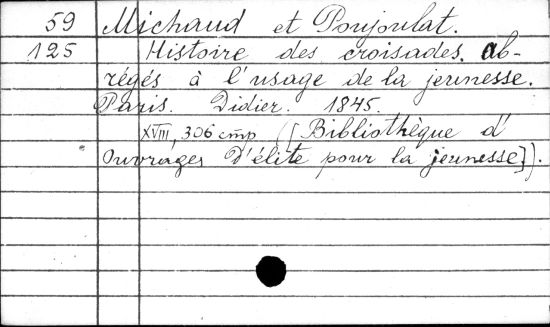 59 Michaud et Poujoulat.
125 Histoire des croisades. ab-
régés à l'usage de la jeunesse.
Paris. Didier. 1845.
XVIII, 306 cmp ([Bibliothèque d'
ouvrages d'élite pour la jeunesse]).